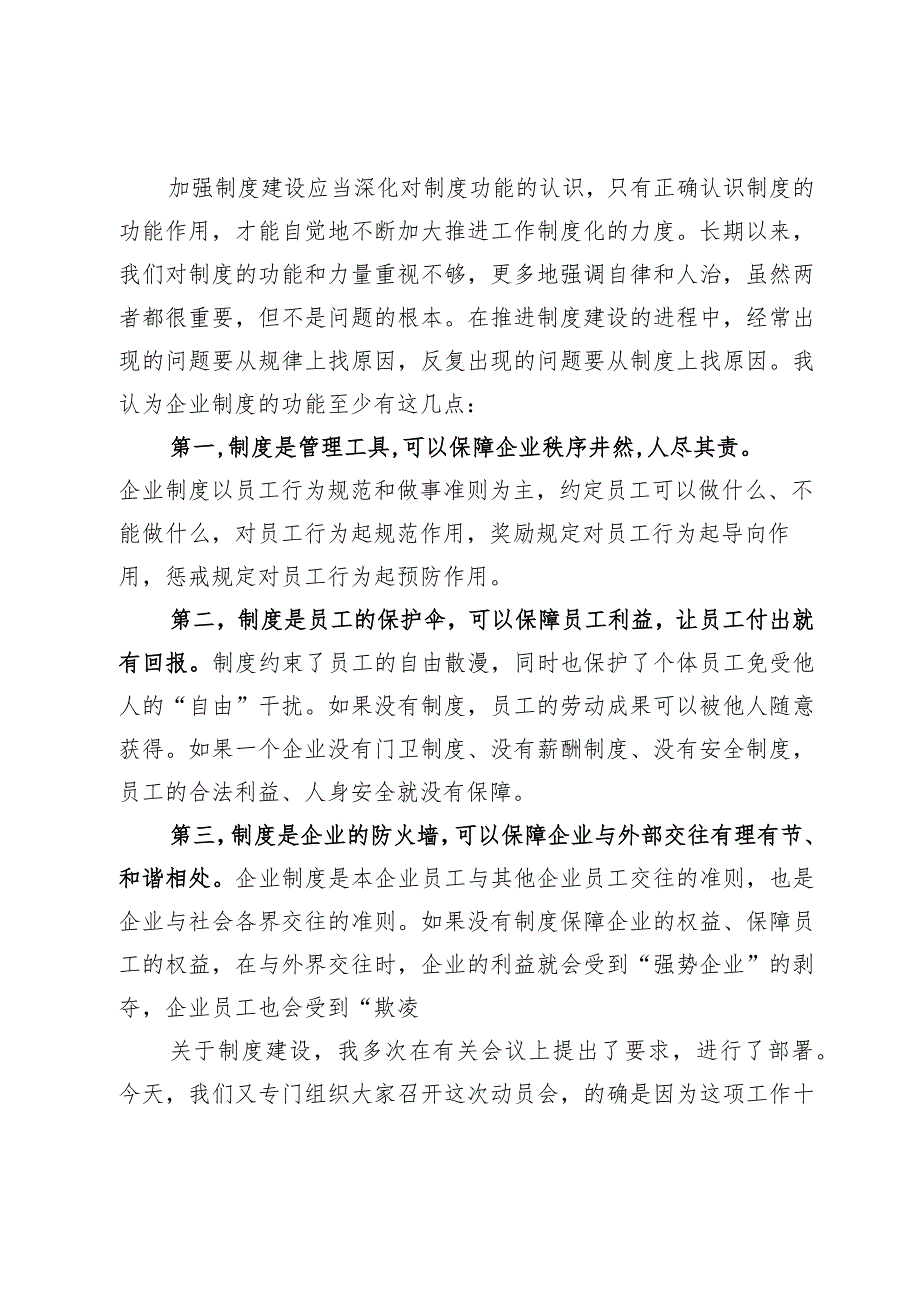 加强制度建设应当深化对制度功能的认识，只有正确认识制度的
功能作用，才能自觉地不断加大推进工作制度化的力度。长期以来，
我们对制度的功能和力量重视不够，更多地强调自律和人治，虽然两
者都很重要，但不是问题的根本。在推进制度建设的进程中，经常出
现的问题要从规律上找原因，反复出现的问题要从制度上找原因。我
认为企业制度的功能至少有这几点：
第一,制度是管理工具,可以保障企业秩序井然,人尽其责。
企业制度以员工行为规范和做事准则为主，约定员工可以做什么、不
能做什么，对员工行为起规范作用，奖励规定对员工行为起导向作
用，惩戒规定对员工行为起预防作用。
第二，制度是员工的保护伞，可以保障员工利益，让员工付出就
有回报。制度约束了员工的自由散漫，同时也保护了个体员工免受他
人的“自由”干扰。如果没有制度，员工的劳动成果可以被他人随意
获得。如果一个企业没有门卫制度、没有薪酬制度、没有安全制度，
员工的合法利益、人身安全就没有保障。
第三,制度是企业的防火墙,可以保障企业与外部交往有理有节、
和谐相处。企业制度是本企业员工与其他企业员工交往的准则，也是
企业与社会各界交往的准则。如果没有制度保障企业的权益、保障员
工的权益，在与外界交往时，企业的利益就会受到“强势企业”的剥
夺，企业员工也会受到“欺凌
关于制度建设，我多次在有关会议上提出了要求，进行了部署。
今天，我们又专门组织大家召开这次动员会，的确是因为这项工作十